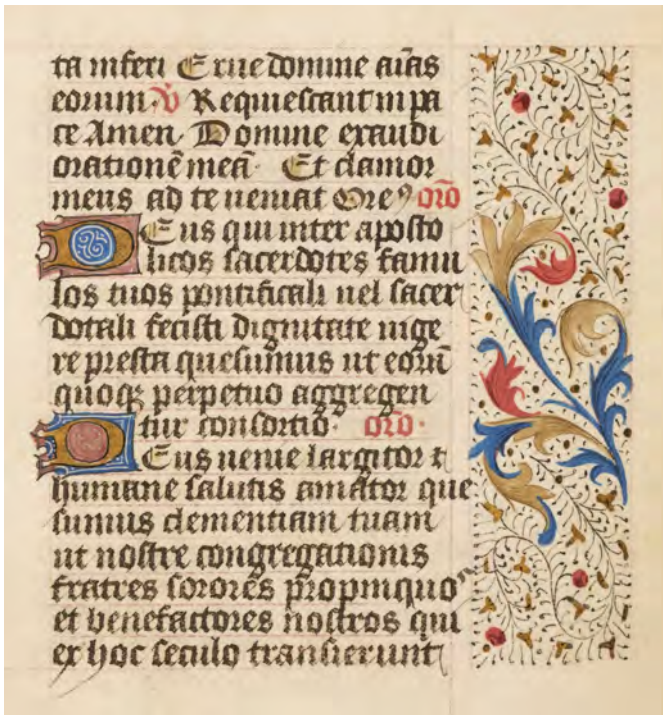 ta inferi Erue domine aīas
eorum ℣ Requiescant in pa
ce Amen Domine exaudi
orationē meā Et clamor
meus ad te ueniat Ore⁹ orō
Deus qui inter aposto
licos sacerdotes famu
los tuos pontificali uel sacer
dotali fecisti dignitate uige
re presta quesumus ut eorū
quoqꝫ perpetuo aggregen
tur consortio orō
Deus uenie largitor ⁊
humane salutis amator que
sumus clementiam tuam
ut nostre congregationis
fratres sorores propinquos
et benefactores nostros qui
ex hoc seculo transierunt